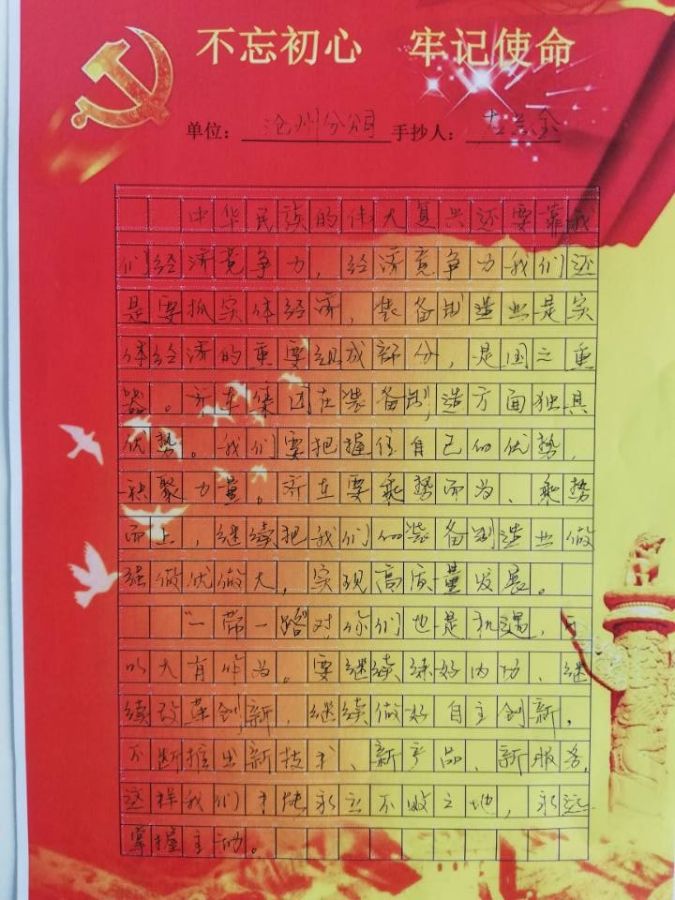 不忘初心 牢记使命
单位: 沧州分公司 手抄人:
中华民族的伟大复兴还要靠我
们经济竞争力,经济竞争力我们还
是要抓实体经济,装备制造业是实
体经济的重要组成部分,是国之重
器。齐车集团在装备制造方面独具
优势。我们要把握住自己的优势,
积聚力量。齐车要乘势而为、乘势
而上,继续把我们的装备制造业做
强做优做大,实现高质量发展。
"一带一路"对你们也是机遇,可
以大有作为。要继续练好内功,继
续改革创新,继续做好自主创新,
不断推出新技术、新产品、新服务,
这样我们才能永立不败之地,永远
掌握主动。